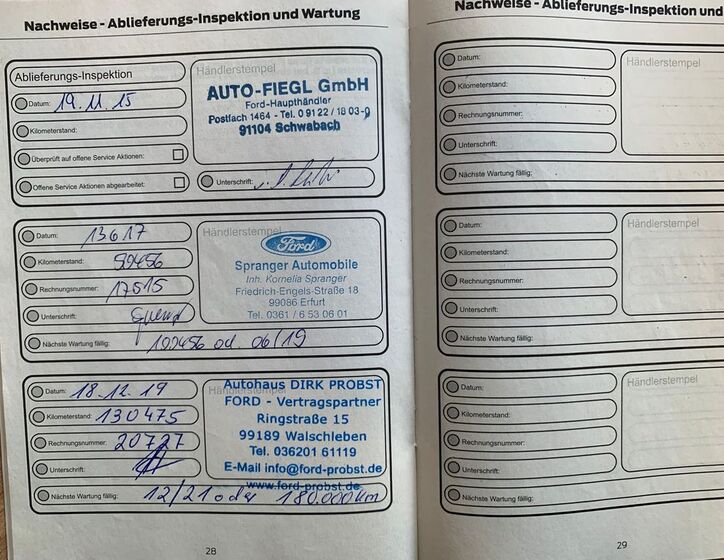 Nachweise - Ablieferungs-Inspektion und Wartung
Ablieferungs-Inspektion
Datum: 19.11.15
Kilometerstand:
Überprüft auf offene Service Aktionen:
Offene Service Aktionen abgearbeitet:
Händlerstempel
AUTO-FIEGL GmbH
Ford-Haupthändler
Postfach 1464 - Tel. 0 91 22 / 18 03-0
91104 Schwabach
Unterschrift:
Datum: 13617
Kilometerstand: 59456
Rechnungsnummer: 17515
Unterschrift:
Händlerstempel
Ford
Spranger Automobile
Inh. Kornelia Spranger
Friedrich-Engels-Straße 18
99086 Erfurt
Tel. 0361 / 6 53 06 01
Nächste Wartung fällig: 102456 od. 06/19
Datum: 18.12.19
Kilometerstand: 130475
Rechnungsnummer: 20727
Unterschrift:
Händlerstempel
Autohaus DIRK PROBST
FORD - Vertragspartner
Ringstraße 15
99189 Walschleben
Tel. 036201 61119
E-Mail info@ford-probst.de
www.ford-probst.de
Nächste Wartung fällig: 12/21 oder 180.000km
28
Nachweise - Ablieferungs-Inspektion und
Datum:
Kilometerstand:
Rechnungsnummer:
Unterschrift:
Nächste Wartung fällig:
Händlerstempel
Datum:
Kilometerstand:
Rechnungsnummer:
Unterschrift:
Nächste Wartung fällig:
Händlerstempel
Datum:
Kilometerstand:
Rechnungsnummer:
Unterschrift:
Nächste Wartung fällig:
Händlerstempel
29